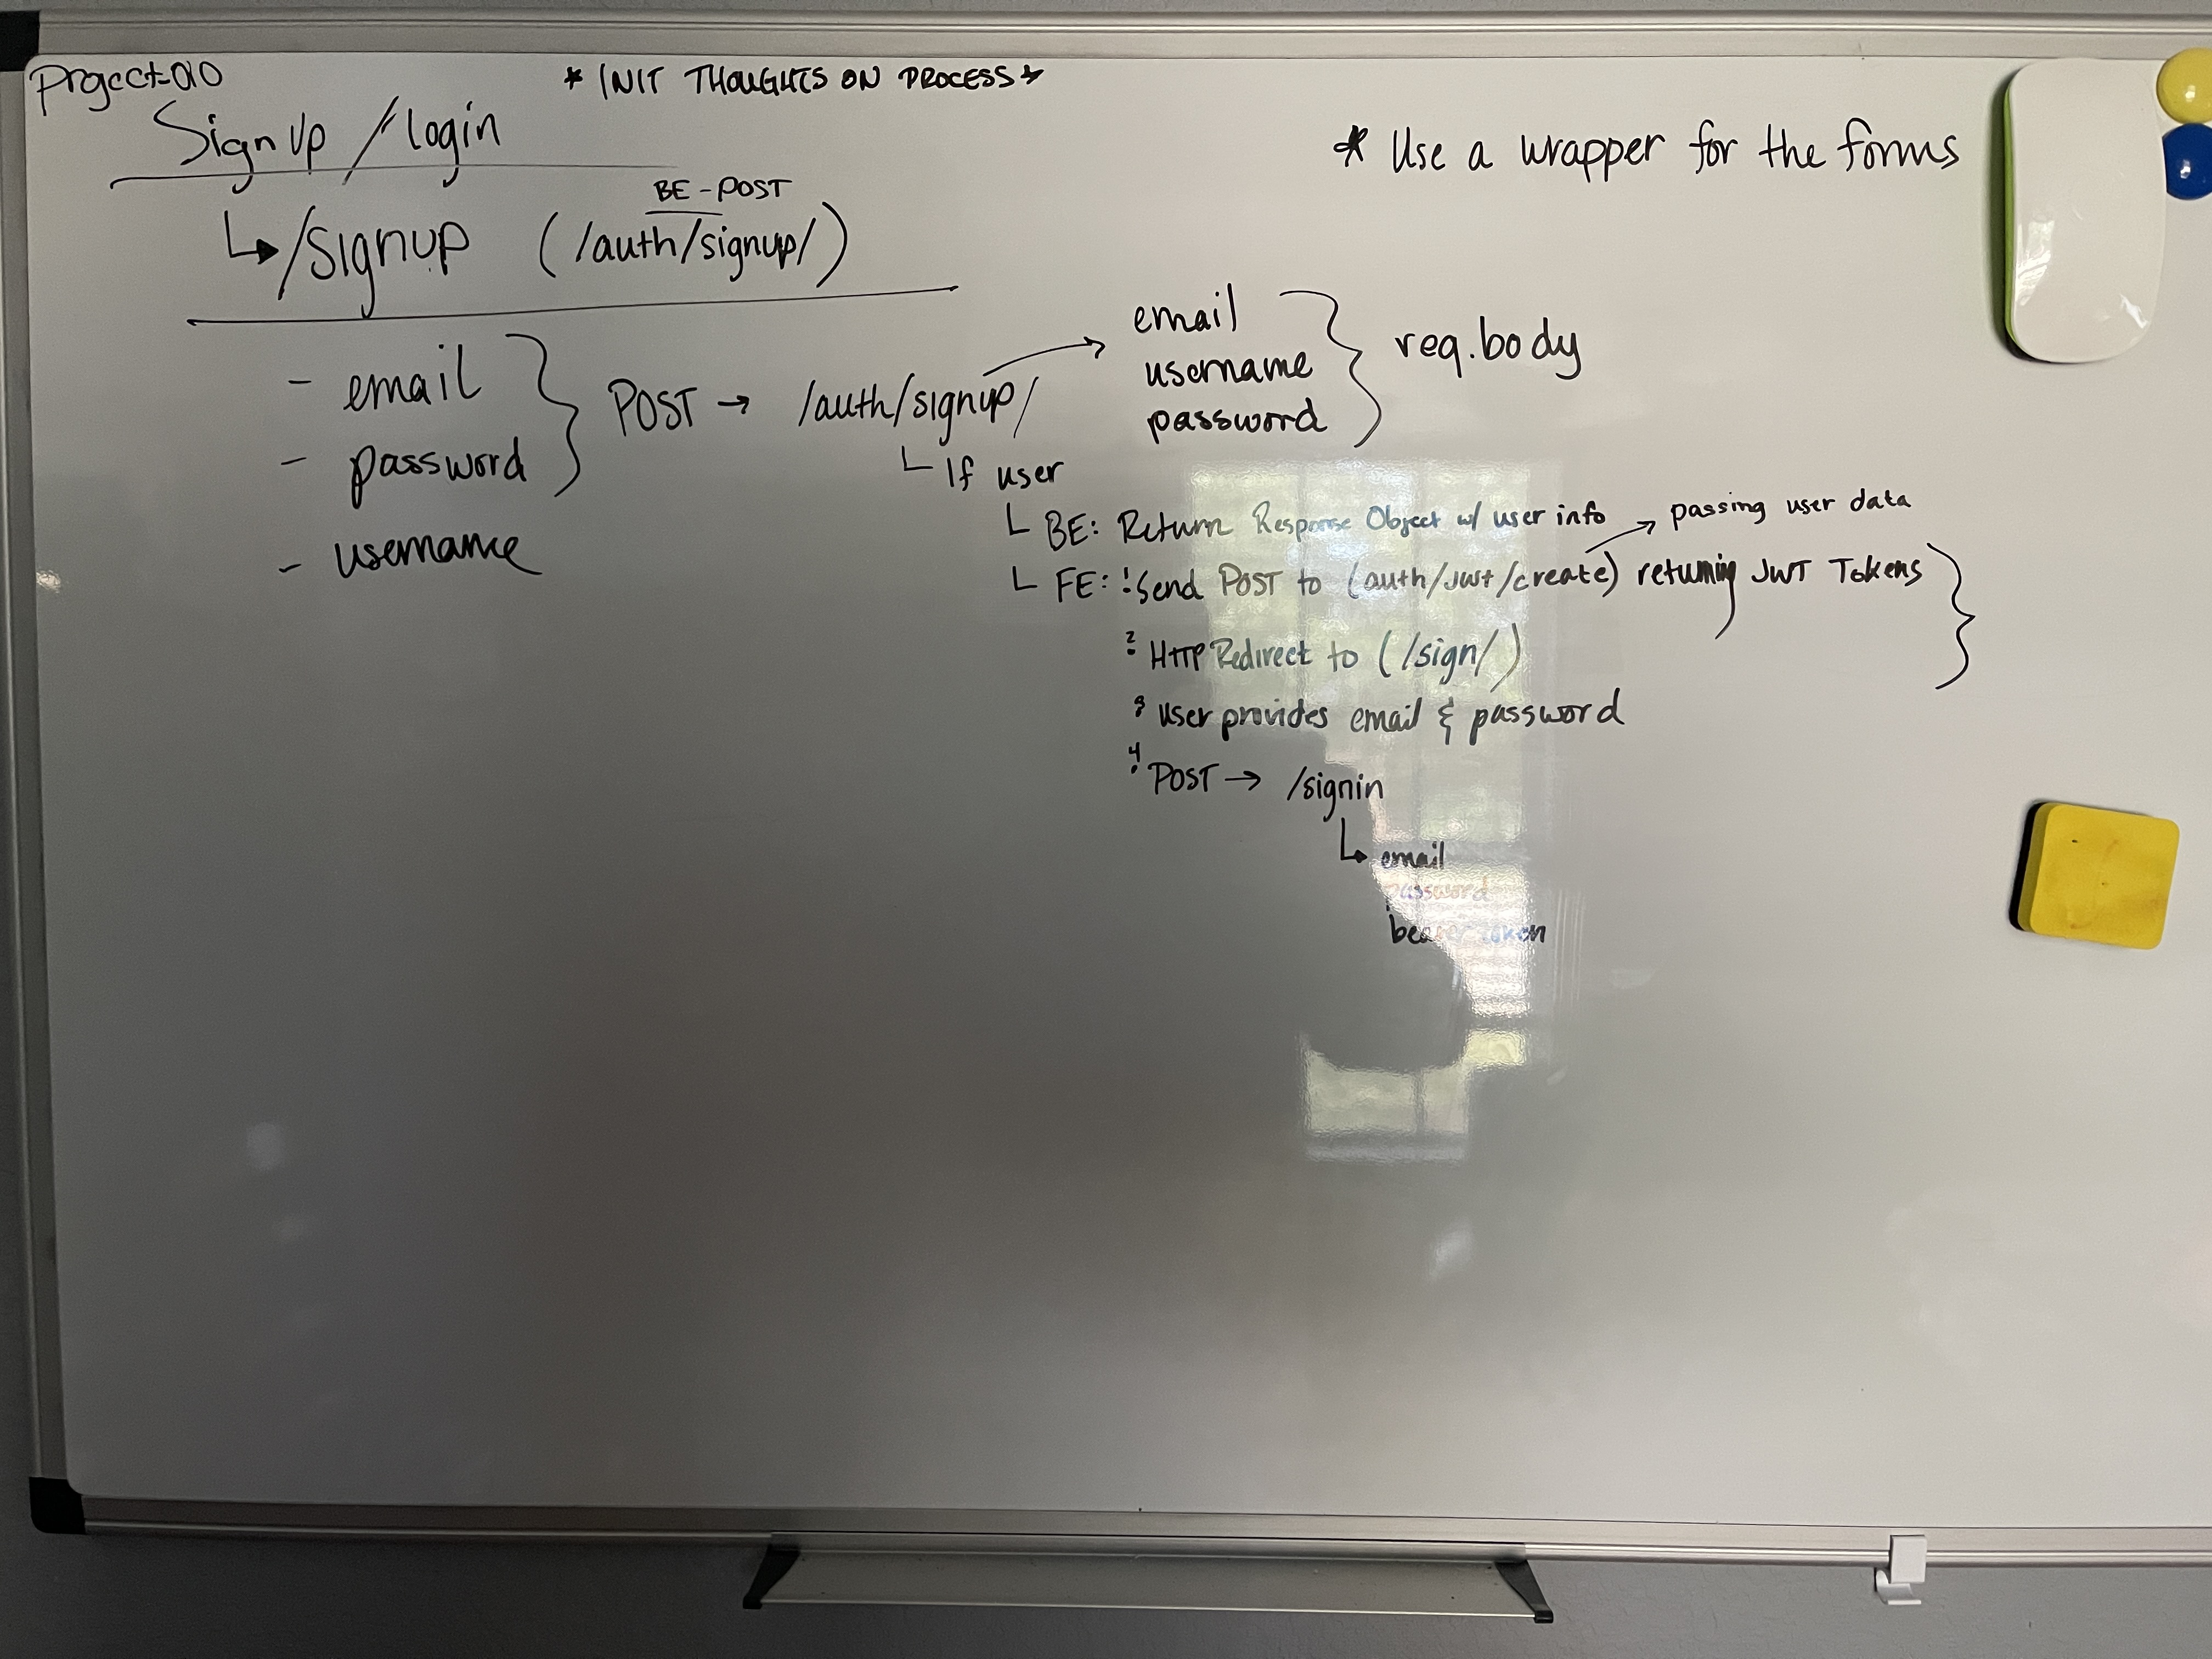 * INIT THOUGHTS ON PROCESS *
Sign Up / login
* Use a wrapper for the forms
BE - POST
↳ /signup (/auth/signup/)
- email
- password
- username
POST → /auth/signup/
email
username
password
req.body
If user
BE: Return Response Object w/ user info
passing user data
FE: 1. Send POST to (auth/jwt/create) returning JWT Tokens
2. HTTP Redirect to (/sign/)
3. User provides email & password
4. POST → /signin
↳ email
password
bearer token